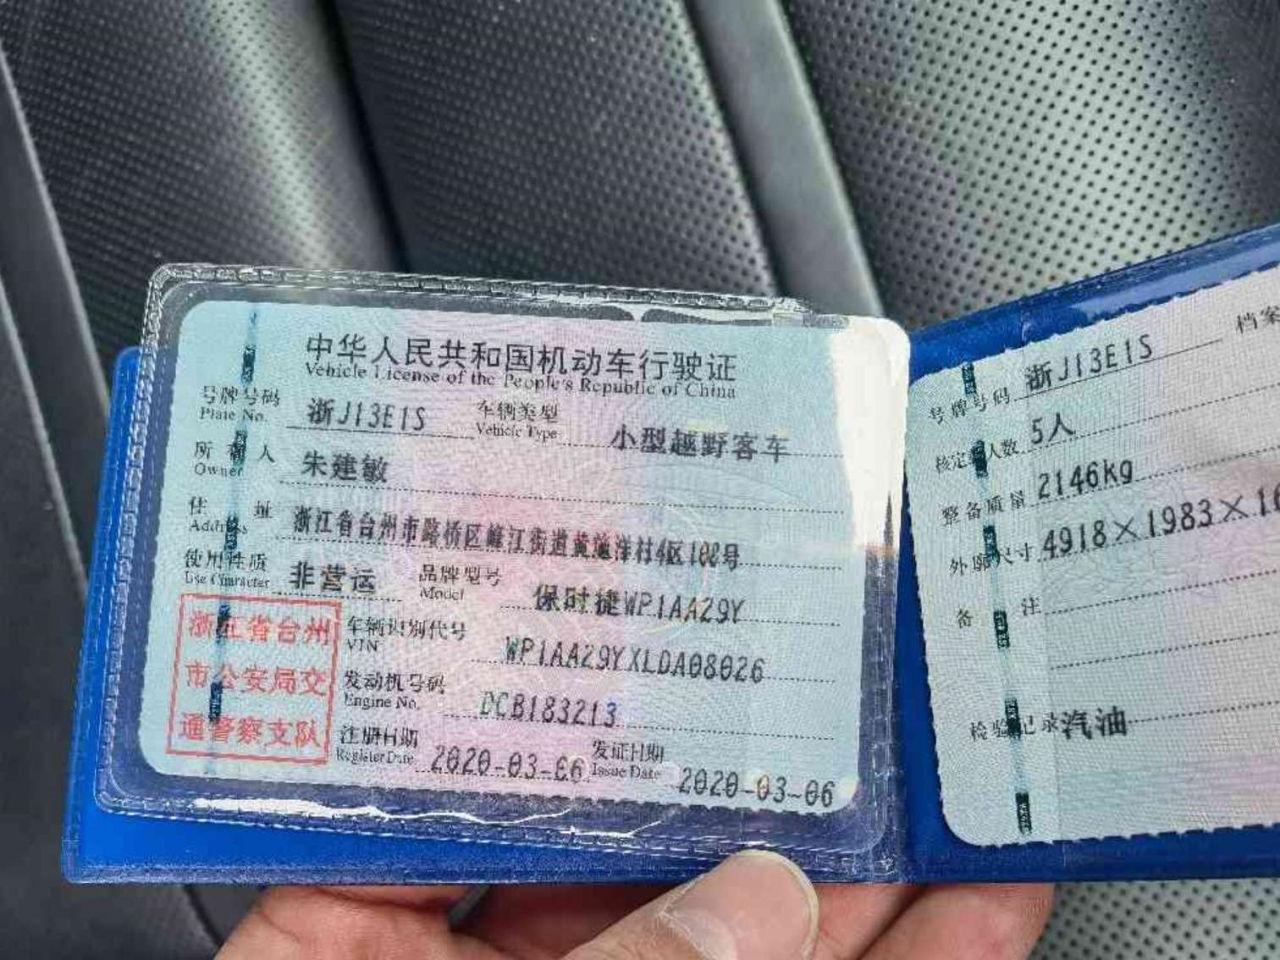 中华人民共和国机动车行驶证
Vehicle License of the People's Republic of China
号牌号码 浙J13E1S 车辆类型 小型越野客车
Plate No. Vehicle Type
所有人 朱建敏
Owner
住址 浙江省台州市路桥区峰江街道黄施洋村4区102号
Address
使用性质 非营运 品牌型号 保时捷WP1AA29Y
Use Character Model
浙江省台州
市公安局交
通警察支队
车辆识别代号 WP1AA29YXLDA08026
VIN
发动机号码 DCB183213
Engine No.
注册日期 2020-03-06 发证日期 2020-03-06
Register Date Issue Date
号牌号码 浙J13E1S 档案
核定载人数 5人
整备质量 2146kg
外廓尺寸 4918×1983×16
备注
检验记录 汽油